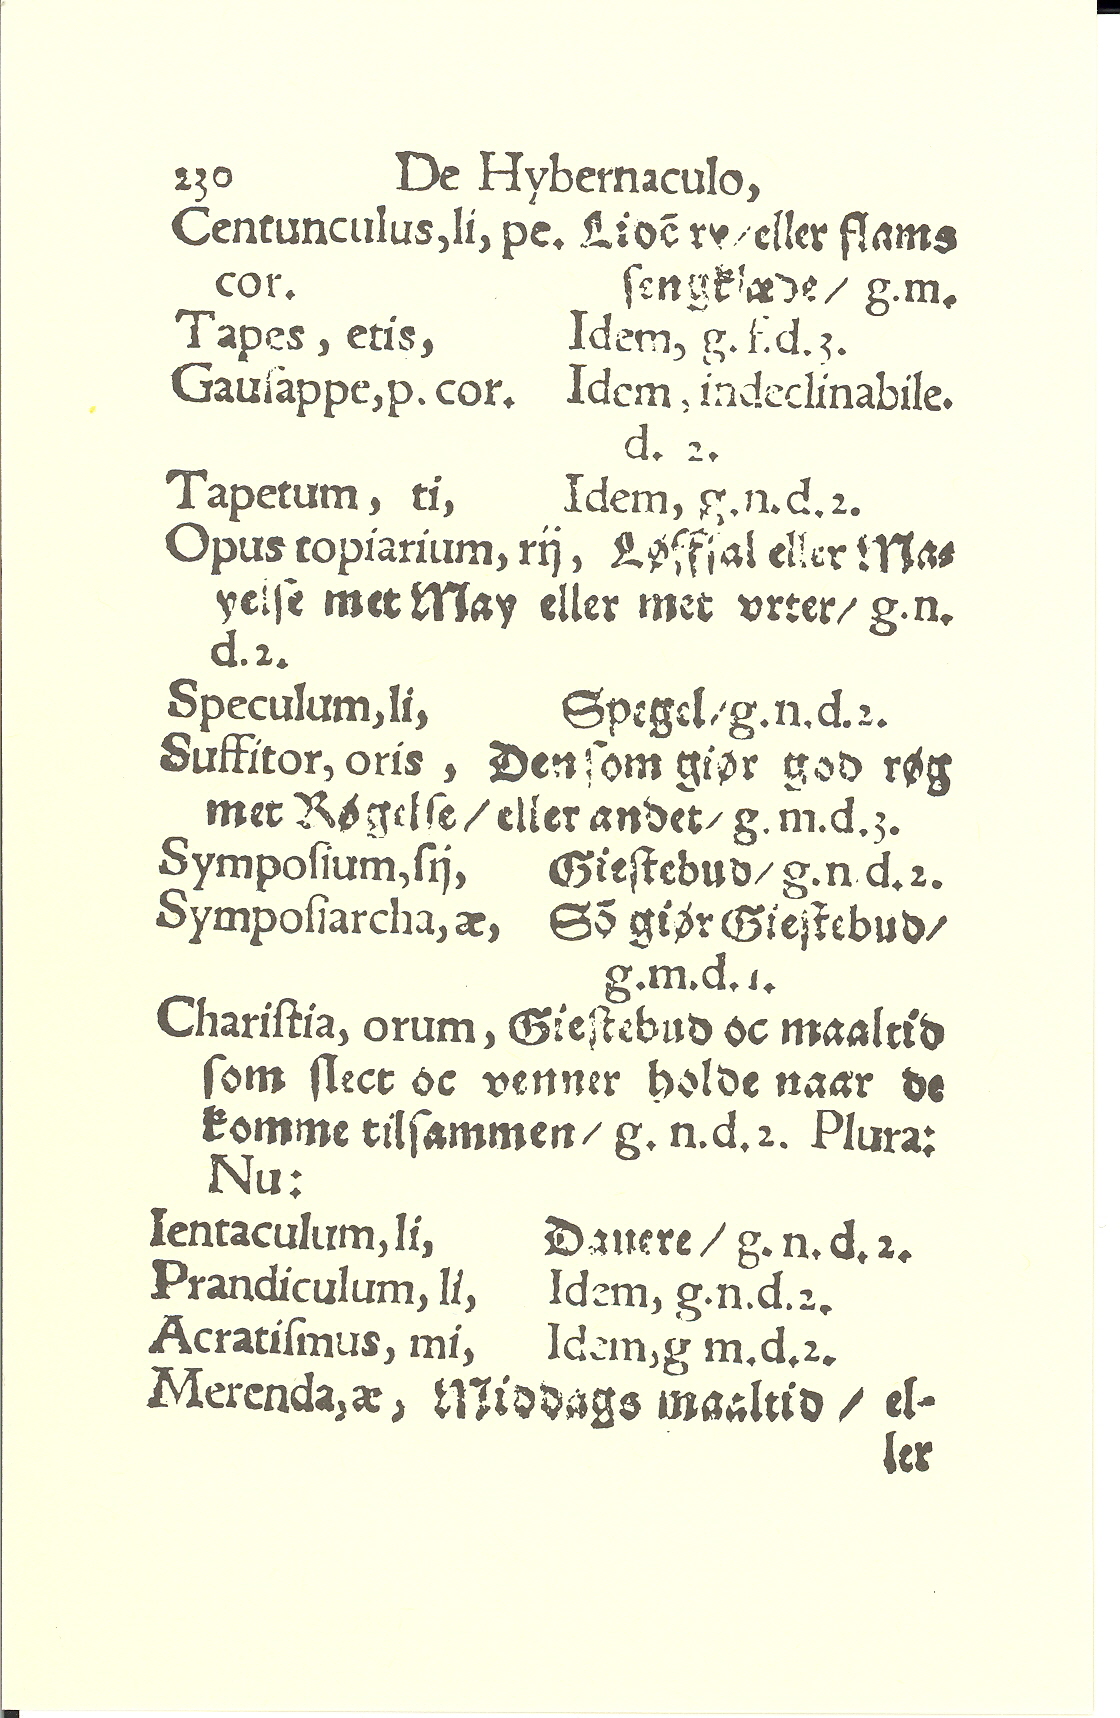 230 De Hybernaculo,
Centunculus,li, pe. Lioc̄ ry/eller flams
cor. sengklæde/ g.m.
Tapes , etis, Idem, g. f.d.3.
Gauſappe,p. cor. Idem, indeclinabile.
d. 2.
Tapetum, ti, Idem, g.n.d.2.
Opus topiarium, rij, Løffſal eller Ma⸗
yelſe met May eller met vrter/ g.n.
d.2.
Speculum,li, Spegel/g.n.d.2.
Suffitor, oris , Den ſom giør god røg
met Røgelſe/eller andet/ g.m.d.3.
Sympoſium,ſij, Gieſtebud/ g.n d.2.
Sympoſiarcha,æ, Sō giør Gieſtebud/
g.m.d.1.
Chariſtia, orum, Gieſtebud oc maaltid
ſom ſlect oc venner holde naar de
komme tilſammen/ g. n.d.2. Plura:
Nu:
Ientaculum,li, Dauere/ g. n. d. 2.
Prandiculum, li, Idem, g.n.d.2.
Acratiſmus, mi, Idem,g m.d.2.
Merenda,æ, Middags maaltid / el-
ler